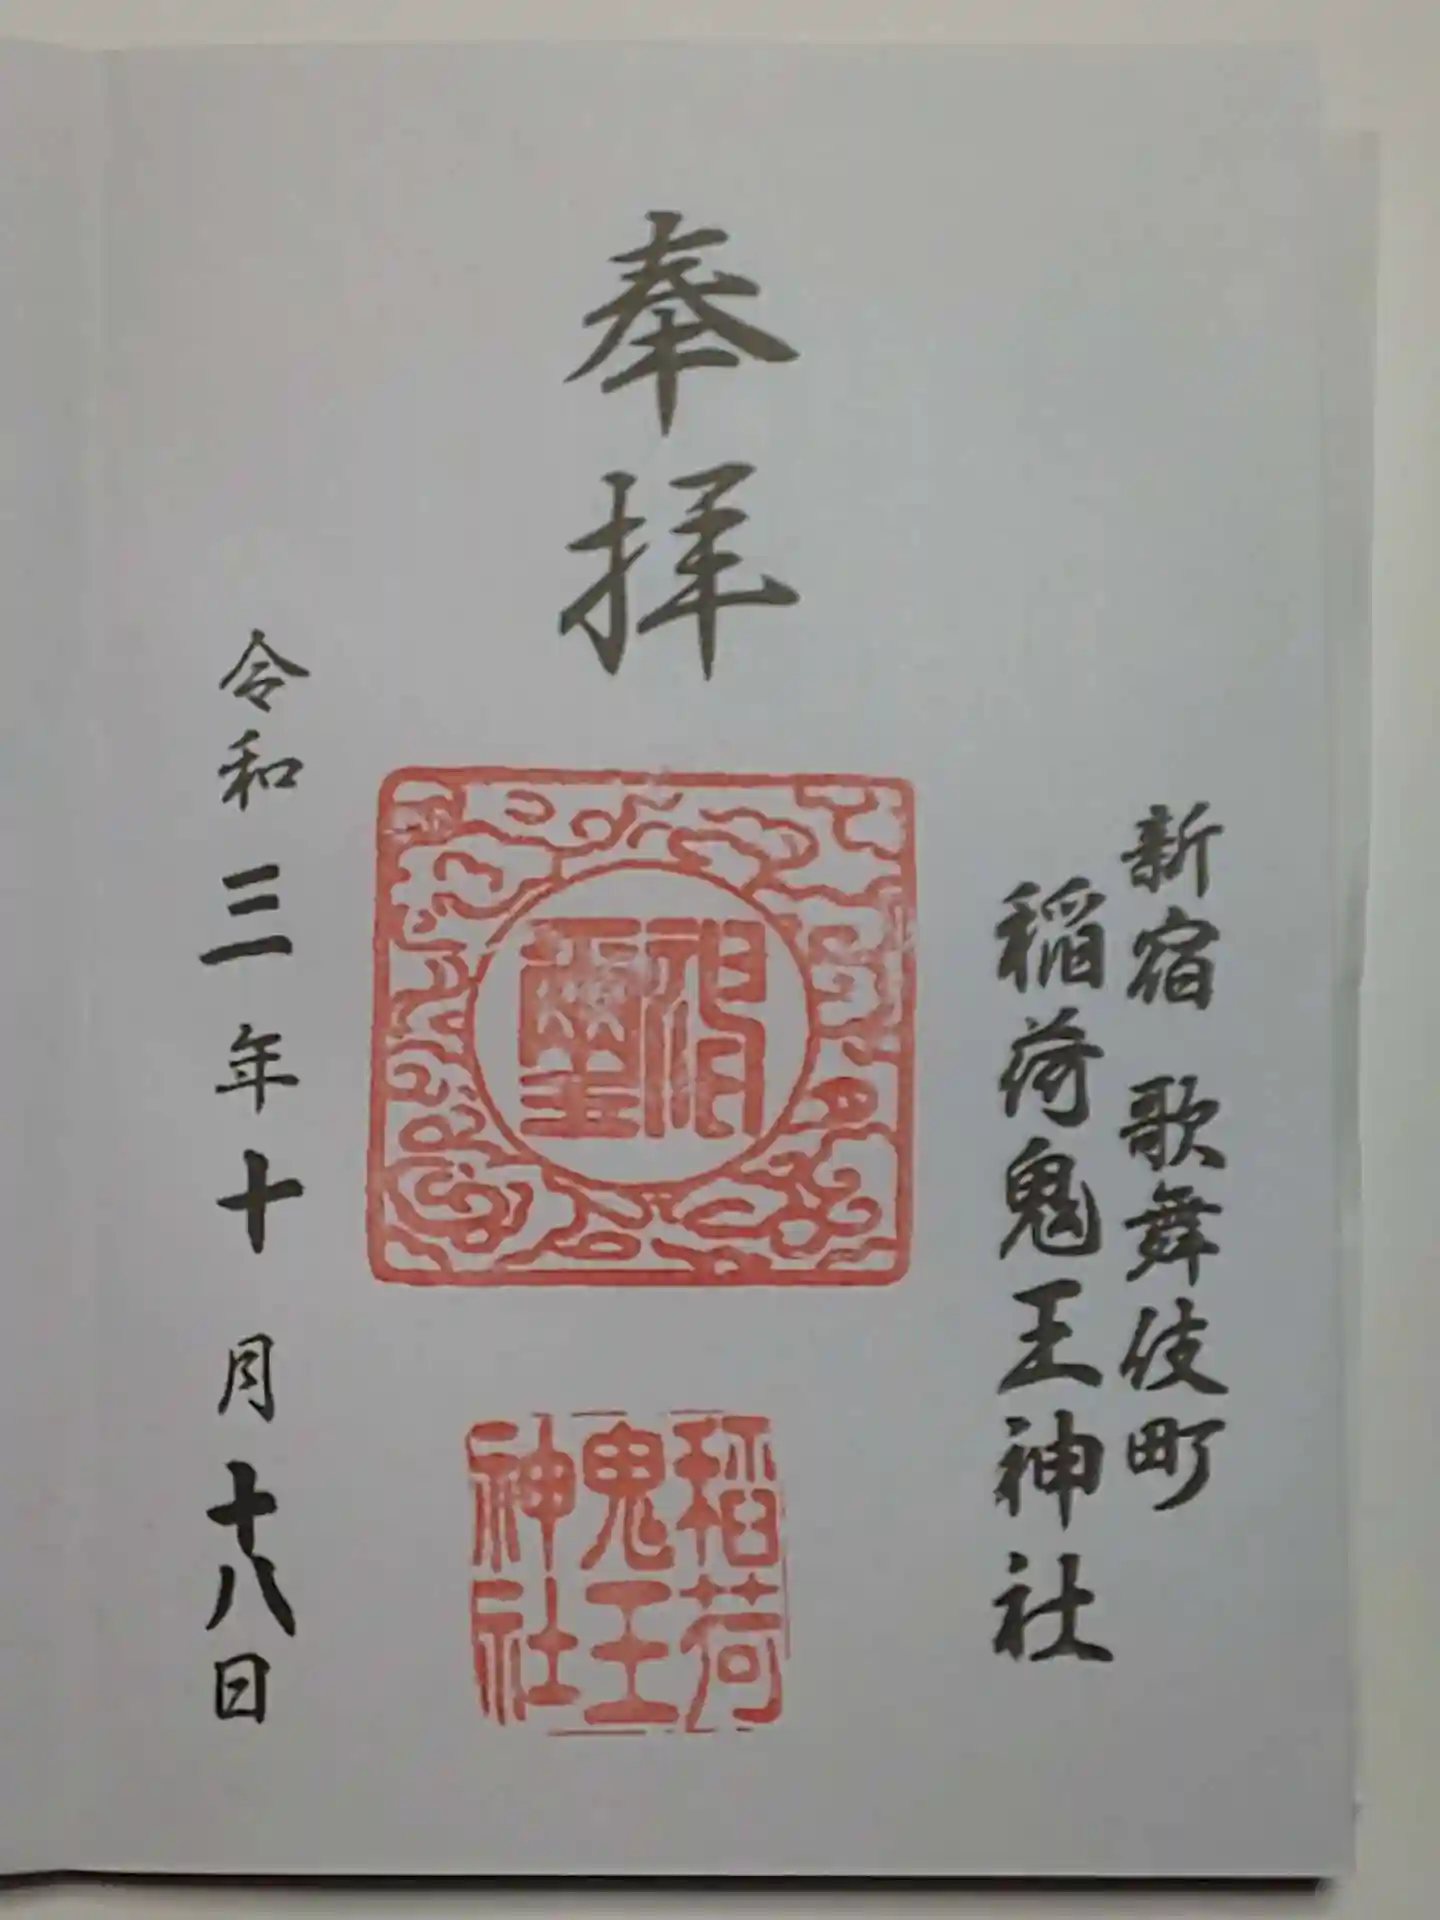 新宿 歌舞伎町
稲荷鬼王神社
奉拝
稲荷
鬼王
神社
令和三年十月十八日